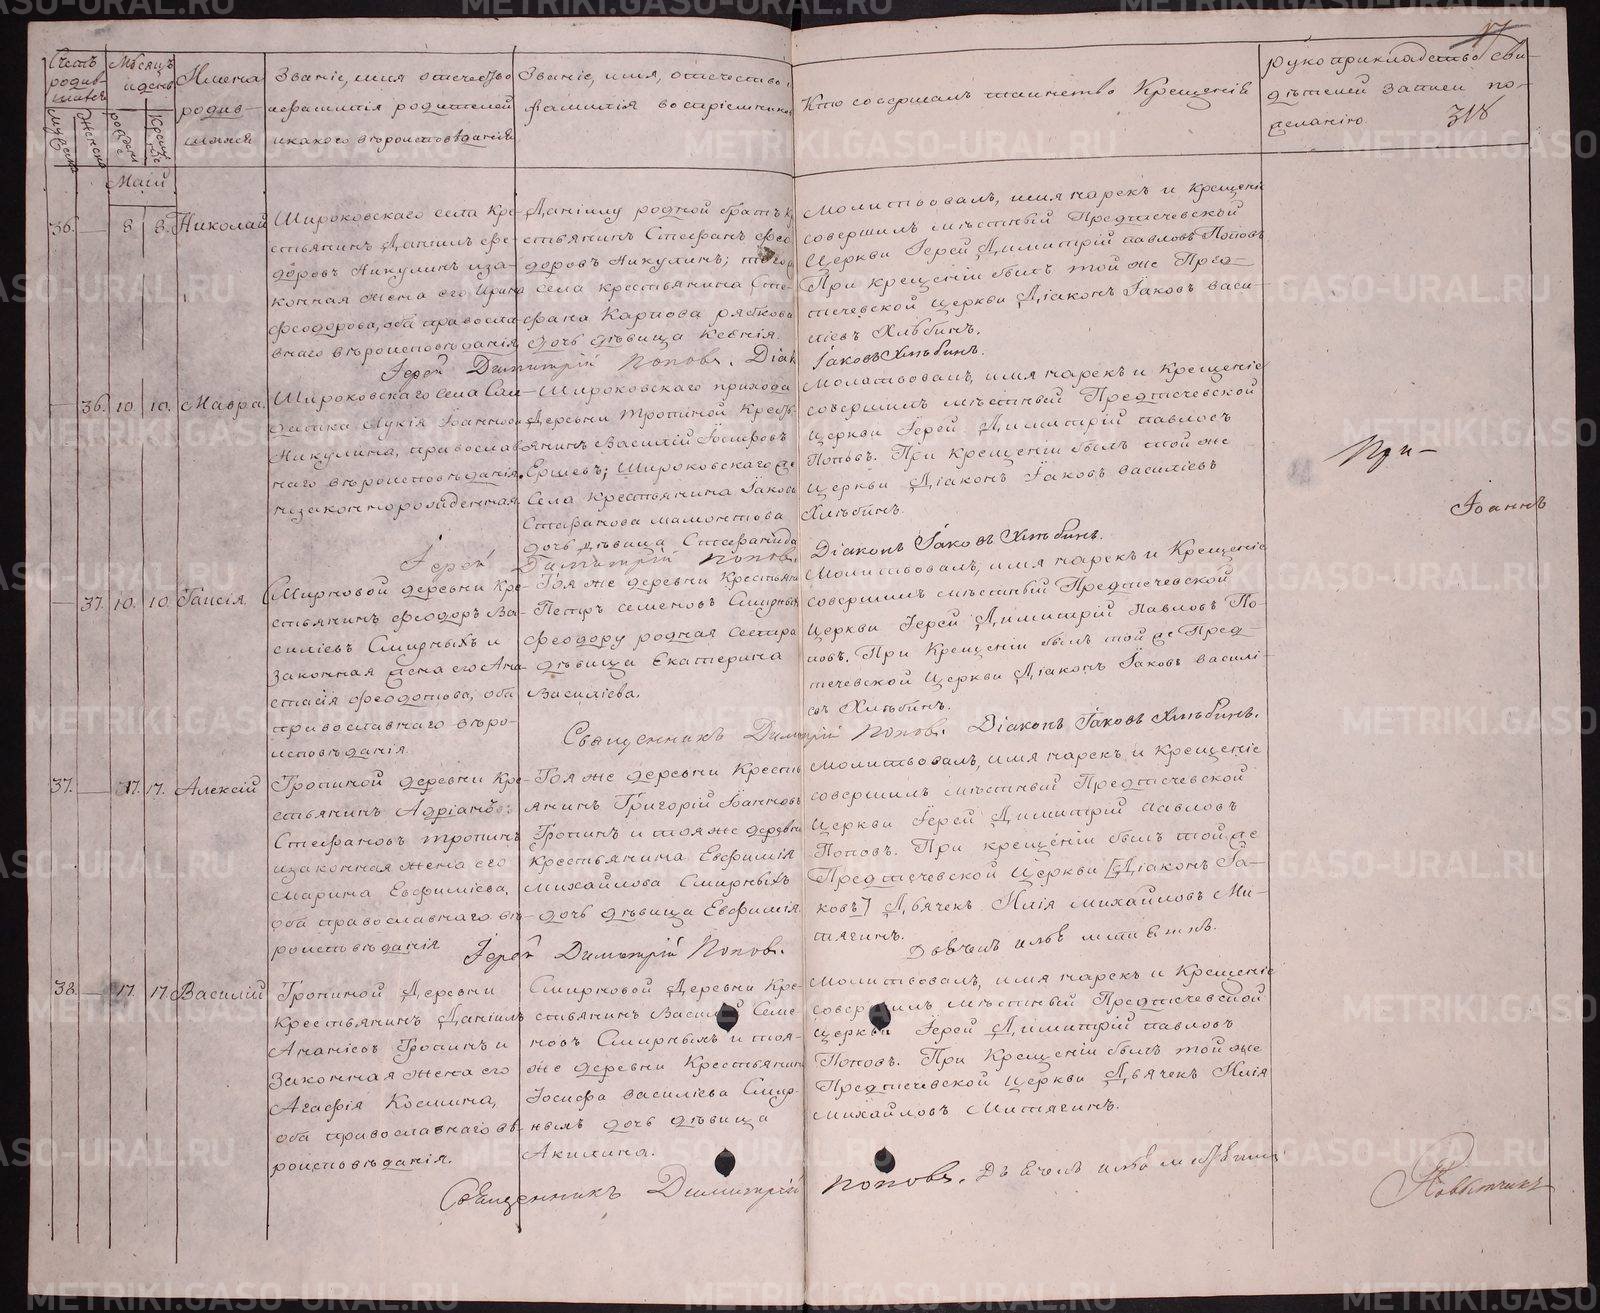 17
318
Счетъ родив-шихся
Мужска
Женска
Мѣсяцъ и день
рожден
Крещ
Имена родив-шихся
Званіе, имя отчество и фамилія родителей и какого вѣроисповѣданія
Званіе, имя, отечество и фамилія воспріемниковъ
Кто совершалъ таинство Крещенія
Рукоприкладство сви-дѣтелей записи по-желанію
Маій
36. — 8 8. Николай
Широковскаго села Кре-
стьянинъ Даніилъ Ѳе-
доровъ Никулинъ и за-
конная жена его Ирина
Ѳеодорова, оба правосла-
внаго вѣроисповѣданія
Даніилу родной братъ к
стьянинъ Стефанъ Ѳео
доровъ Никулинъ; того
села крестьянина Сте-
фана Карпова рябкова
дочь дѣвица Ксенія.
Молитвовалъ, имя нарекъ и крещеніе
совершилъ мѣстный Предтечевской
Церкви Іерей Димитрій павловъ Поповъ
При крещеніи былъ той же Пред-
течевской Церкви Діаконъ Іаковъ Васи-
ліевъ Хлѣбинъ.
Іерей Димитрій Поповъ. Діак
Іаковъ Хлѣбинъ.
— 36. 10. 10. Мавра.
Широковскаго Села Сол-
датка Лукія Іоаннова
Никулина, православ-
наго вѣроисповѣданія.
незаконнорожденная
Широковскаго прихода
Деревни Тропиной Кресть
янинъ Василій Іосифовъ
Ершевъ; Широковскаго же
Села Крестьянина Іакова
Стефанова Мамонтова
дочь дѣвица Стефанида
Молитвовалъ, имя нарекъ и крещеніе
совершилъ мѣстный Предтечевской
Церкви Іерей Димитрій павловъ
Поповъ. При крещеніи былъ той же
Церкви Діаконъ Іаковъ Василіевъ
Хлѣбинъ.
Іерей Димитрій Поповъ.
Діаконъ Іаковъ Хлѣбинъ.
— 37. 10. 10. Таисія.
Смирновой деревни кре
стьянинъ Ѳеодоръ Ва-
силіевъ Смирныхъ и
законная жена его Ана-
стасія Ѳеодотова, оба
православнаго вѣро-
исповѣданія.
Тоя же деревни Крестьян
Петръ Семеновъ Смирных
Ѳеодору родная Сестра
дѣвица Екатерина
Василіева.
Молитвовалъ, имя нарекъ и Крещеніе
совершилъ мѣстный Предтечевской
Церкви Іерей Димитрій Павловъ По-
повъ. При Крещеніи былъ той же Пред-
течевской Церкви Діаконъ Іаковъ Василі-
евъ Хлѣбинъ.
Священникъ Димитрій Поповъ. Діаконъ Іаковъ Хлѣбинъ.
37. — 17. 17. Алексій
Тропиной деревни Кре-
стьянинъ Адріанъ
Стефановъ Тропинъ
и законная жена его
Марина Евфиміева,
оба православнаго вѣ-
роисповѣданія
Тоя же деревни Кресть
янинъ Григорій Іоанновъ
Тропинъ и тоя же деревни
крестьянина Евфимія
Михайлова Смирныхъ
дочь дѣвица Евфимія.
Молитвовалъ, имя нарекъ и Крещеніе
совершилъ мѣстный Предтечевской
Церкви Іерей Димитрій Павловъ
Поповъ. При крещеніи былъ той же
Предтечевской Церкви [Діаконъ Іа-
ковъ] Дьячекъ Илія Михайловъ Ми-
тягинъ.
Іерей Димитрій Поповъ.
38. — 17. 17. Василій
Тропиной Деревни
Крестьянинъ Даніилъ
Ананіевъ Тропинъ и
Законная жена его
Агафія Космина,
оба православнаго вѣ-
роисповѣданія.
Смирновой Деревни Кре-
стьянинъ Василій Семе-
новъ Смирныхъ и тоя-
же деревни Крестьянина
Іосифа Василіева Смир-
ныхъ дочь дѣвица
Акилина.
Молитвовалъ, имя нарекъ и Крещеніе
совершилъ мѣстный Предтечевской
Церкви Іерей Димитрій павловъ
Поповъ. При Крещеніи былъ той же
Предтечевской Церкви Дьячекъ Илія
Михайловъ Митягинъ.
Священникъ Димитрій Поповъ.
При-
Іоаннъ
METRIKI.GASO-URAL.RU